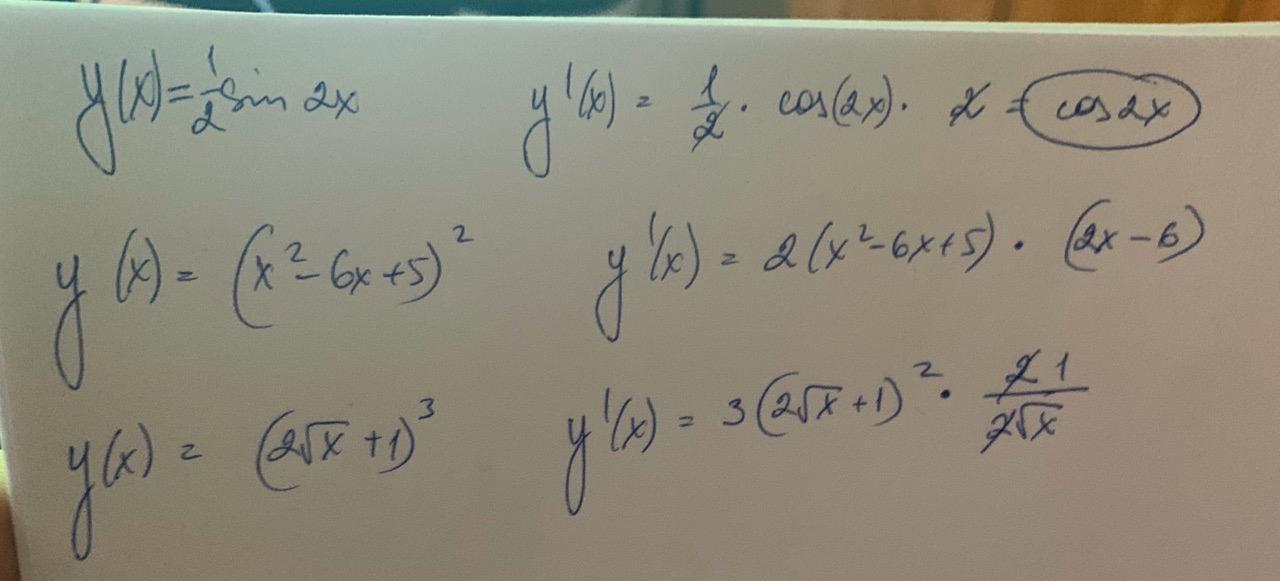 y(x) = 1/2 sin 2x    y'(x) = 1/2 · cos(2x) · 2 = cos 2x
y(x) = (x² - 6x + 5)²    y'(x) = 2(x² - 6x + 5) · (2x - 6)
y(x) = (2√x + 1)³    y'(x) = 3(2√x + 1)² · 2 1/2√x